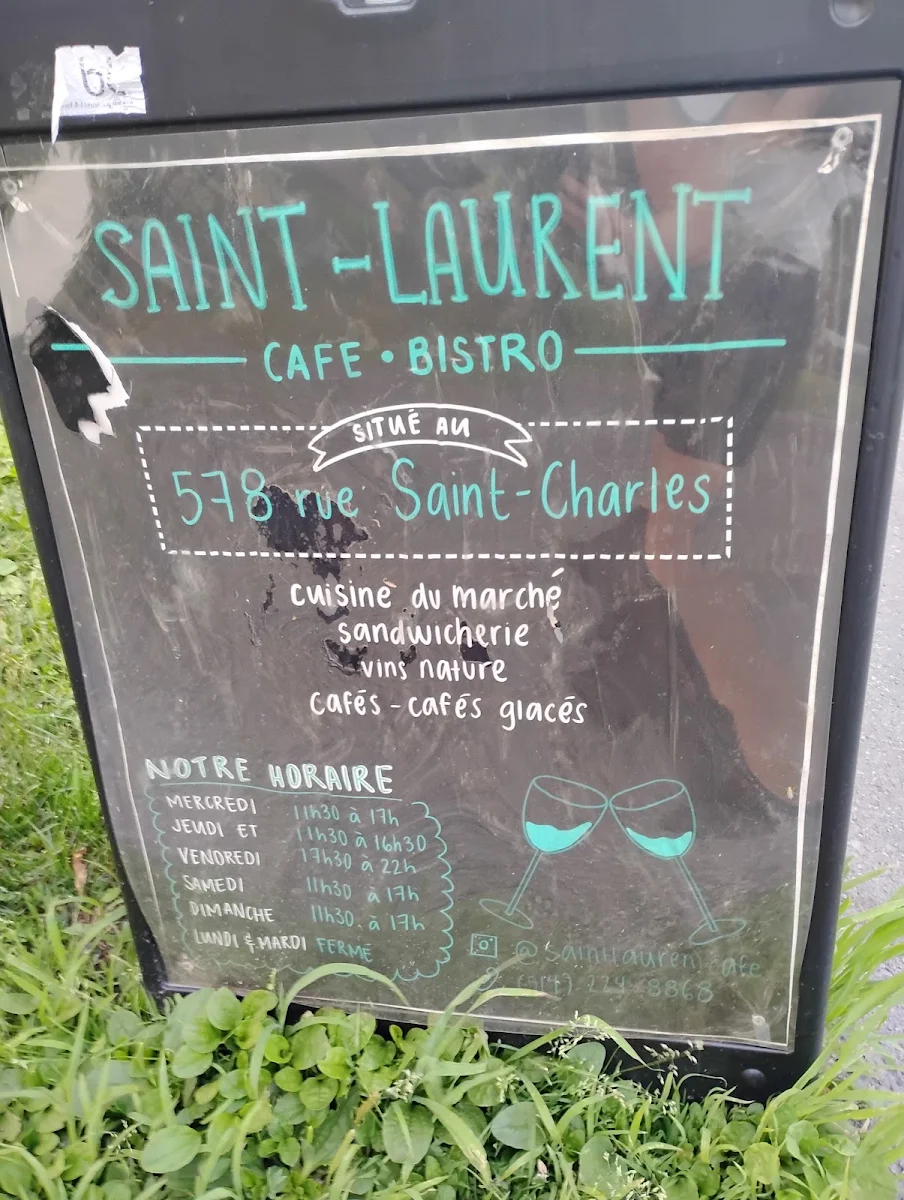 SAINT-LAURENT
CAFE • BISTRO
SITUÉ AU
578 rue Saint-Charles
cuisine du marché
sandwicherie
vins nature
cafés - cafés glacés
NOTRE HORAIRE
MERCREDI 11h30 à 17h
JEUDI ET 11h30 à 16h30
VENDREDI 17h30 à 22h
SAMEDI 11h30 à 17h
DIMANCHE 11h30 à 17h
LUNDI & MARDI FERMÉ
224-8868